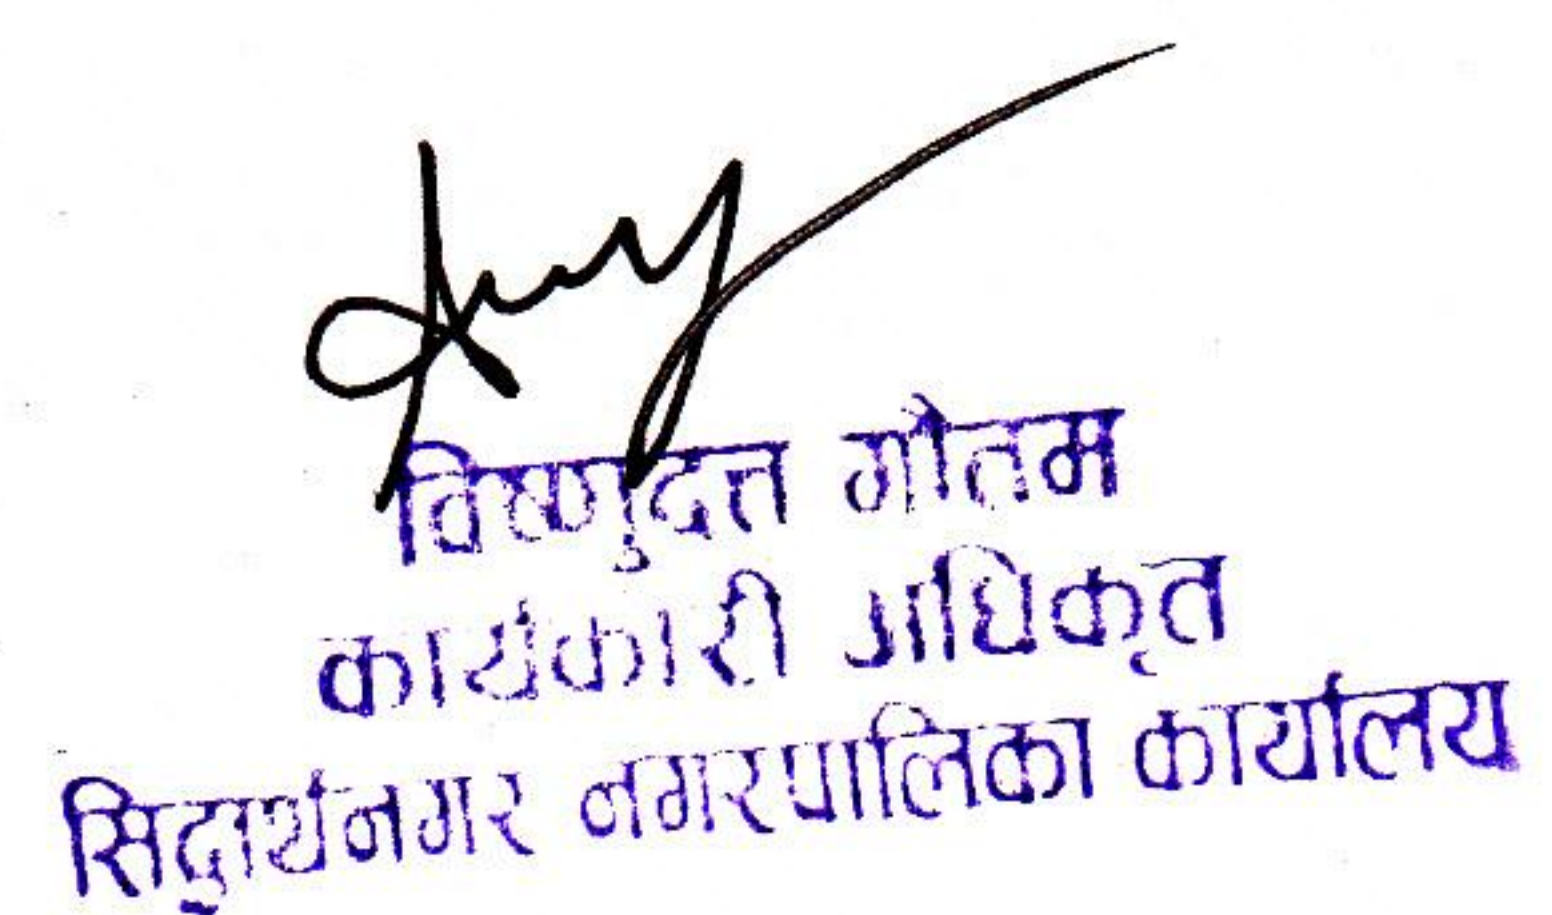 विष्णुदत्त गौतम
कार्यकारी अधिकृत
सिद्धार्थनगर नगरपालिका कार्यालय